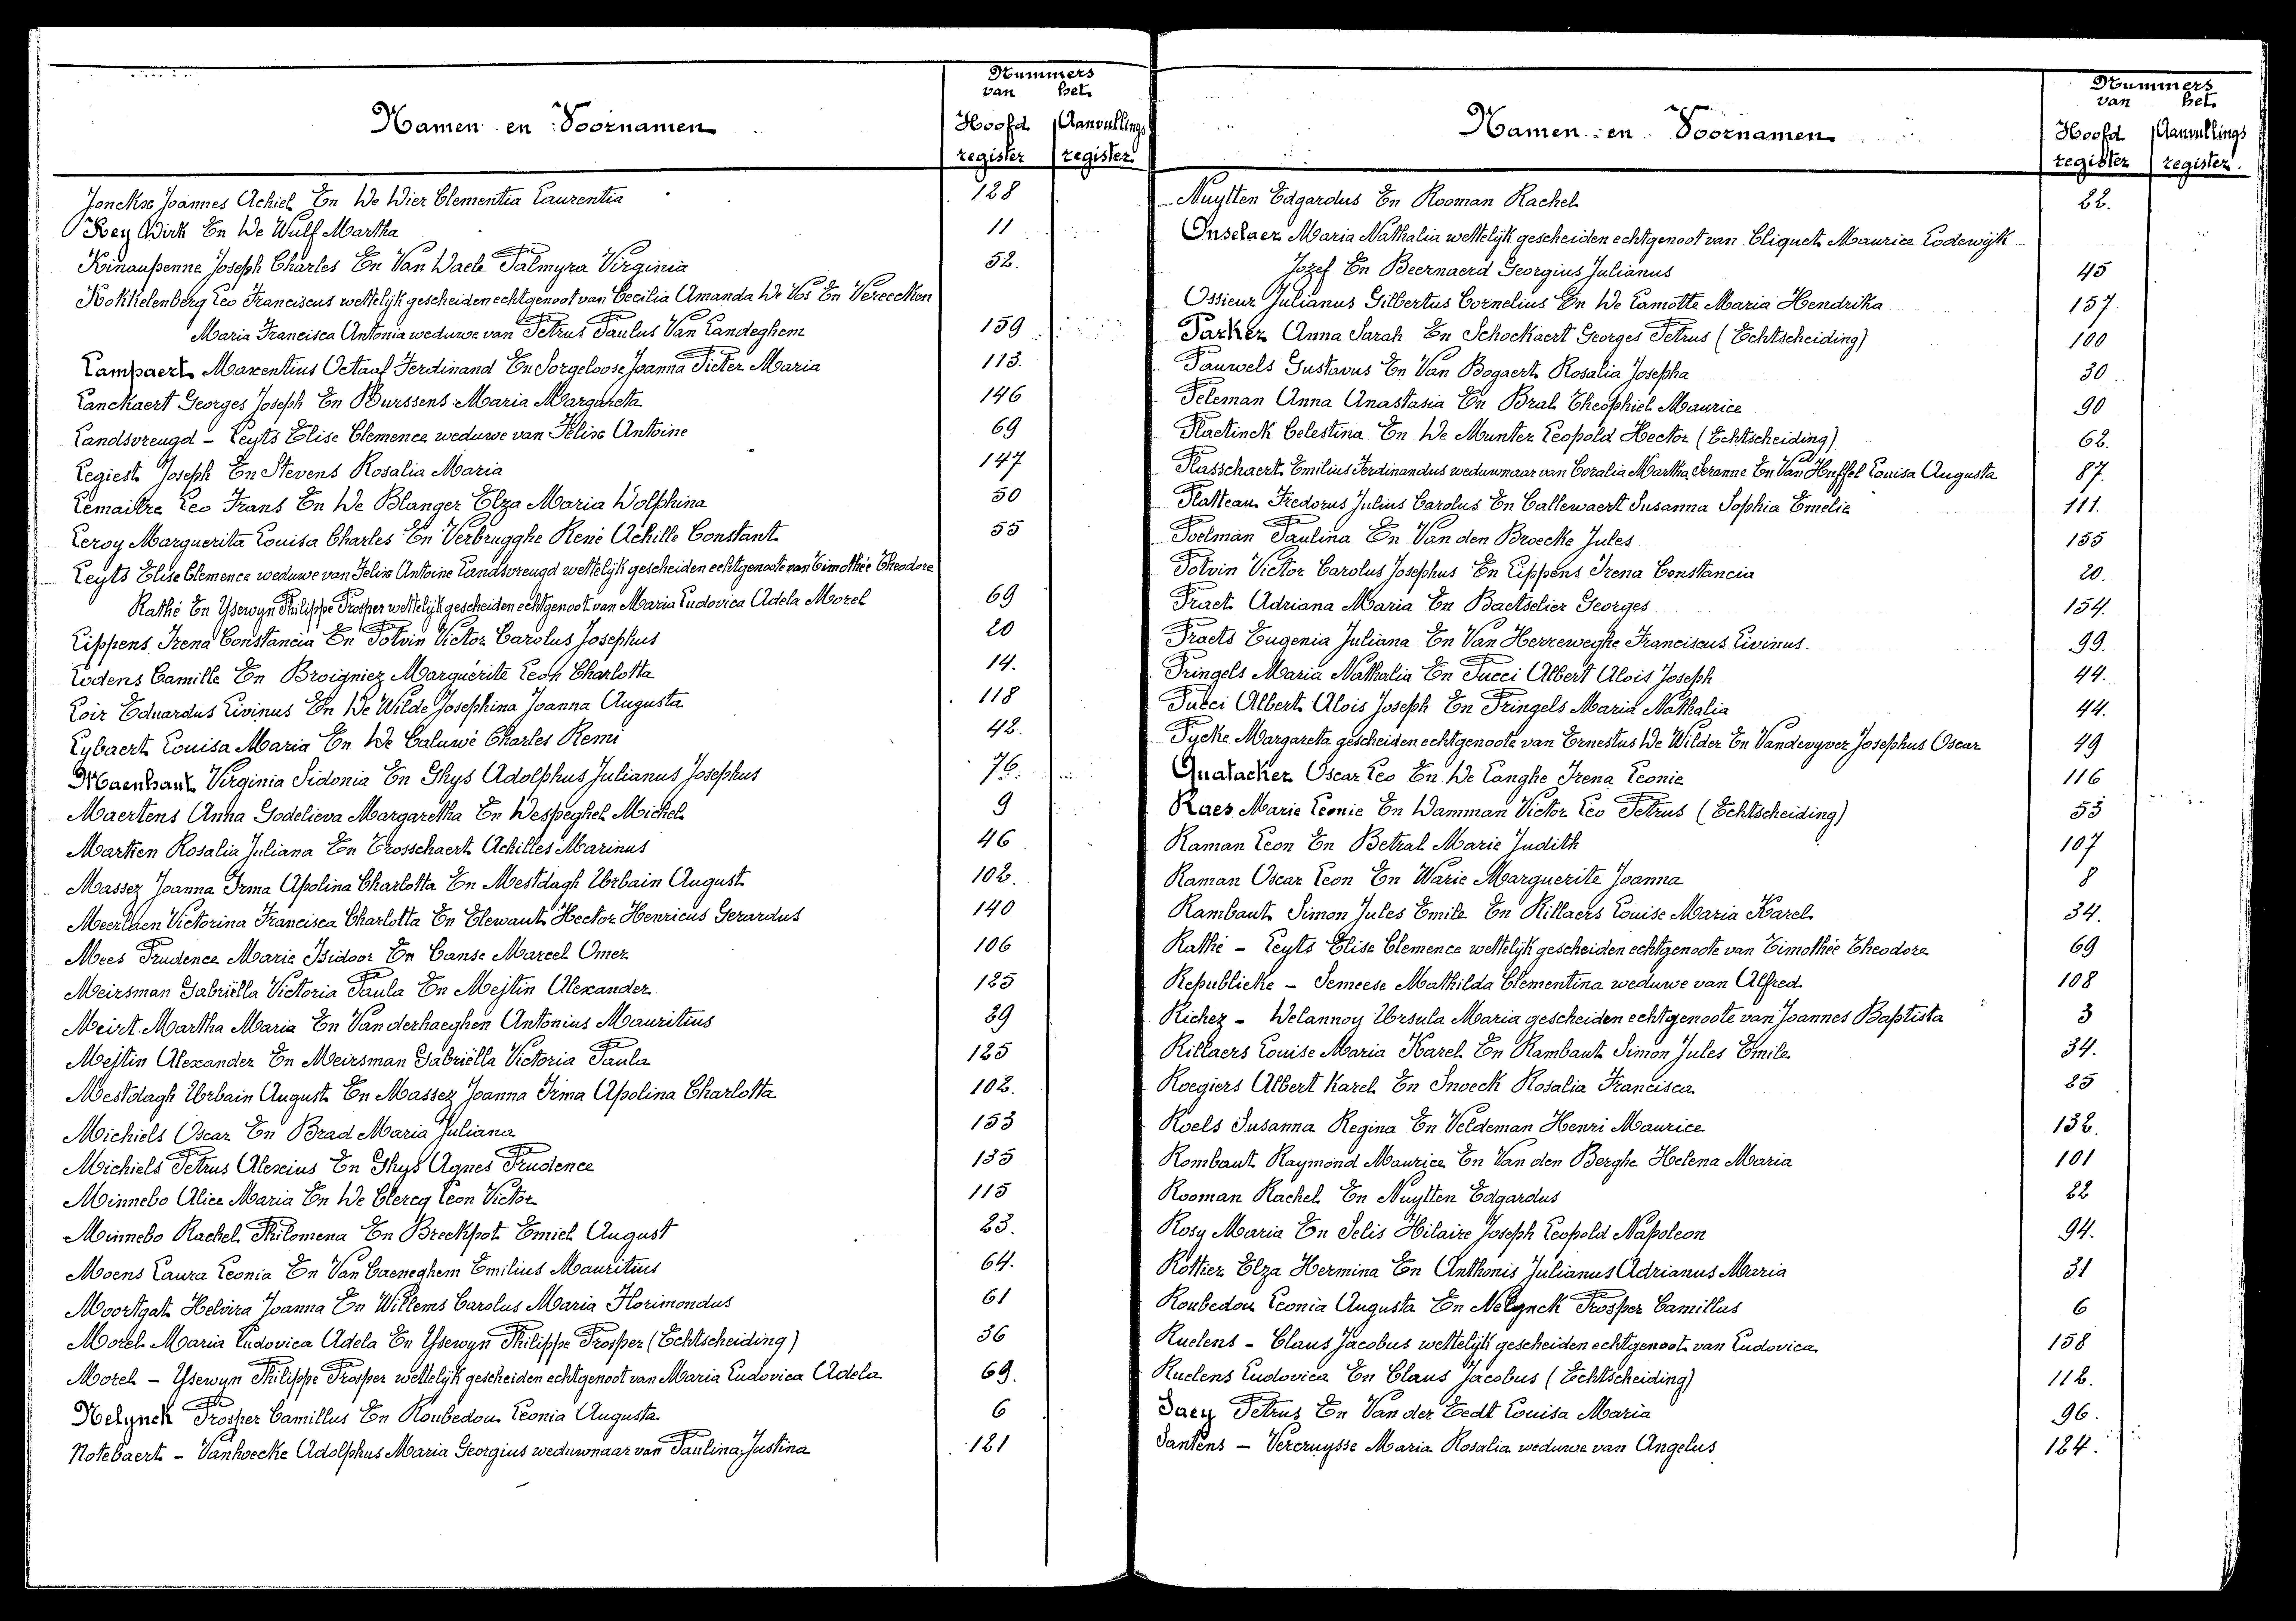 Nummers
van het
Namen en Voornamen
Hoofd Aanvullings
register register
Jonckx Joannes Achiel En De Dier Clementia Laurentia 128
Key Dirk En De Wulf Martha 11
Kinaupenne Joseph Charles En Van Daele Palmyra Virginia 52.
Kokkelenberg Leo Franciscus wettelijk gescheiden echtgenoot van Cecilia Amanda De Vos En Vereecken
Maria Francisca Antonia weduwe van Petrus Paulus Van Landeghem 159
Lampaert Maxentius Octaaf Ferdinand En Sorgeloose Joanna Pieter Maria 113.
Lanckaert Georges Joseph En Burssens Maria Margareta 146
Landsvreugd - Leyts Elise Clemence weduwe van Felix Antoine 69
Legiest Joseph En Stevens Rosalia Maria 147
Lemaitre Leo Frans En De Blanger Elza Maria Dolphina 50
Leroy Marguerita Louisa Charles En Verbrugghe René Achille Constant 55
Leyts Elise Clemence weduwe van Felix Antoine Landsvreugd wettelijk gescheiden echtgenoote van Timothée Theodore
Rathé En Ysewyn Philippe Prosper wettelijk gescheiden echtgenoot van Maria Ludovica Adela Morel 69
Lippens Irena Constancia En Potvin Victor Carolus Josephus 20
Lodens Camille En Broigniez Marguérite Leon Charlotta 14.
Loir Eduardus Livinus En De Wilde Josephina Joanna Augusta 118
Lybaert Louisa Maria En De Caluwé Charles Remi 42.
Maenhaut Virginia Sidonia En Ghys Adolphus Julianus Josephus 76.
Maertens Anna Godelieva Margaretha En Despeghel Michel 9
Martien Rosalia Juliana En Trosschaert Achilles Marinus 46
Massez Joanna Irma Apolina Charlotta En Mestdagh Urbain August 102.
Meerlaen Victorina Francisca Charlotta En Elewaut Hector Henricus Gerardus 140
Mees Prudence Marie Isidoor En Canse Marcel Omer 106
Meirsman Gabriëlla Victoria Paula En Mejtin Alexander 125
Meirt Martha Maria En Vanderhaeghen Antonius Mauritius 29
Mejtin Alexander En Meirsman Gabriëlla Victoria Paula 125
Mestdagh Urbain August En Massez Joanna Irma Apolina Charlotta 102.
Michiels Oscar En Brad Maria Juliana 153
Michiels Petrus Alexius En Ghys Agnes Prudence 135
Minnebo Alice Maria En De Clercq Leon Victor 115
Minnebo Rachel Philomena En Breckpot Emiel August 23.
Moens Laura Leonia En Van Caeneghem Emilius Mauritius 64.
Moortgat Helvira Joanna En Willems Carolus Maria Florimondus 61
Morel Maria Ludovica Adela En Ysewyn Philippe Prosper (Echtscheiding) 36
Morel - Ysewyn Philippe Prosper wettelijk gescheiden echtgenoot van Maria Ludovica Adela 69.
Nelynck Prosper Camillus En Roubedou Leonia Augusta 6
Notebaert - Vanhoecke Adolphus Maria Georgius weduwnaar van Paulina Justina 121
Nummers
van het
Namen en Voornamen
Hoofd Aanvullings
register register.
Nuytten Edgardus En Rooman Rachel 22.
Onselaer Maria Nathalia wettelijk gescheiden echtgenoot van Cliquet Maurice Lodewijk
Jozef En Beernaerd Georgius Julianus 45
Ossieur Julianus Gilbertus Cornelius En De Lamotte Maria Hendrika 157
Parker Anna Sarah En Schockaert Georges Petrus (Echtscheiding) 100
Pauwels Gustavus En Van Bogaert Rosalia Josepha 30
Peleman Anna Anastasia En Bral Theophiel Maurice 90
Plaetinck Celestina En De Munter Leopold Hector (Echtscheiding) 62.
Plasschaert Emilius Ferdinandus weduwnaar van Coralia Martha Seranne En Van Huffel Louisa Augusta 87.
Platteau Fredorus Julius Carolus En Callewaert Susanna Sophia Emelie 111.
Poelman Paulina En Van den Broecke Jules 155
Potvin Victor Carolus Josephus En Lippens Irena Constancia 20.
Praet Adriana Maria En Baetselier Georges 154.
Praets Eugenia Juliana En Van Herreweghe Franciscus Livinus 99.
Pringels Maria Nathalia En Pucci Albert Alois Joseph 44.
Pucci Albert Alois Joseph En Pringels Maria Nathalia 44.
Pycke Margareta gescheiden echtgenoote van Ernestus De Wilder En Vandevyver Josephus Oscar 49
Quatacker Oscar Leo En De Langhe Irena Leonie 116
Raes Marie Leonie En Damman Victor Leo Petrus (Echtscheiding) 53
Raman Leon En Betral Marie Judith 107
Raman Oscar Leon En Warie Marguerite Joanna 8
Rambaut Simon Jules Emile En Rillaers Louise Maria Karel 34.
Rathé - Leyts Elise Clemence wettelijk gescheiden echtgenoote van Timothée Theodore 69
Republieke - Semeese Mathilda Clementina weduwe van Alfred 108
Richez - Delannoy Ursula Maria gescheiden echtgenoote van Joannes Baptista 3
Rillaers Louise Maria Karel En Rambaut Simon Jules Emile 34.
Roegiers Albert Karel En Snoeck Rosalia Francisca 25
Roels Susanna Regina En Veldeman Henri Maurice 132.
Rombaut Raymond Maurice En Van den Berghe Helena Maria 101
Rooman Rachel En Nuytten Edgardus 22
Rosy Maria En Selis Hilaire Joseph Leopold Napoleon 94.
Rottier Elza Hermina En Anthonis Julianus Adrianus Maria 31
Roubedou Leonia Augusta En Nelynck Prosper Camillus 6
Ruelens - Claus Jacobus wettelijk gescheiden echtgenoot van Ludovica 158
Ruelens Ludovica En Claus Jacobus (Echtscheiding) 112.
Saey Petrus En Van der Eedt Louisa Maria 96.
Santens - Vercruysse Maria Rosalia weduwe van Angelus 124.